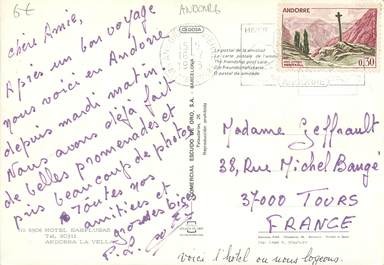 6€
ANDORRE
ESCUDO DE ORO
ANDORRE
0,30
La postal de la amistad
La carte postale de l'amitié
The friendship post card
Die Freundschaftskarte
El postal da amizade
BARCELONA
COMERCIAL ESCUDO DE ORO, S.A. - BARCELONA
Palaudarias, 26
Reproducción prohibida
Chère Amie,
Après un bon voyage
nous voici en Andorre
depuis mardi matin.
Nous avons déjà fait
de belles promenades et
pris beaucoup de photos
Toutes nos
amitiés et
grosses bises
HOTEL
Tel.
ANDORRA LA VELLA
Madame Geffault
38, Rue Michel Baugé
37000 TOURS
FRANCE
P.S
Voici l'hotel ou nous logeons.